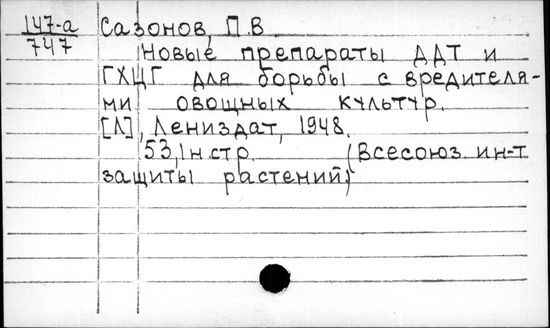 147-а Сазонов, П.В
747
Новые препараты ДДТ и
ГХЦГ для борьбы с вредителя-
ми овощных культур.
[Л], Лениздат, 1948.
53, 1 н.стр. (Всесоюз. ин-т
защиты растений)